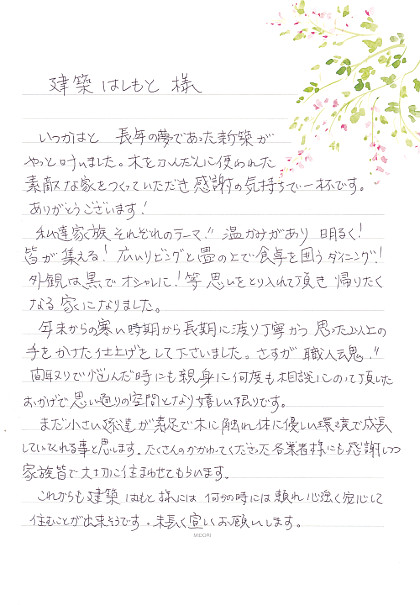 建築はしもと 様
いつかはと 長年の夢であった新築が
やっと叶いました。木をふんだんに使われた
素敵な家をつくっていただき感謝の気持ちで一杯です。
ありがとうございます!
私達家族 それぞれのテーマ!! 温かみがあり 明るく!
皆が集える! 広いリビングと畳の上で食卓を囲うダイニング!
外観は黒でオシャレに! 等 思いをとり入れて頂き 帰りたく
なる家になりました。
年末からの寒い時期から長期に渡り丁寧かつ 思った以上の
手をかけた仕上げをして下さいました。さすが 職人魂!!
間取りで悩んだ時にも親身に何度も相談にのって頂した
おかげで思い通りの空間となり嬉しい限りです。
まだ小さい孫達が素足で木に触れ体に優しい環境で成長
していくれる事と思します。たくさんのかかわってくださった各業者様にも感謝しつつ
家族皆で大切に住まわせてもらいます。
これからも建築はもと様には 何かの時には頼れ心強く安心して
住むことが出来そうです。末長く宜しくお願いします。
MIDORI